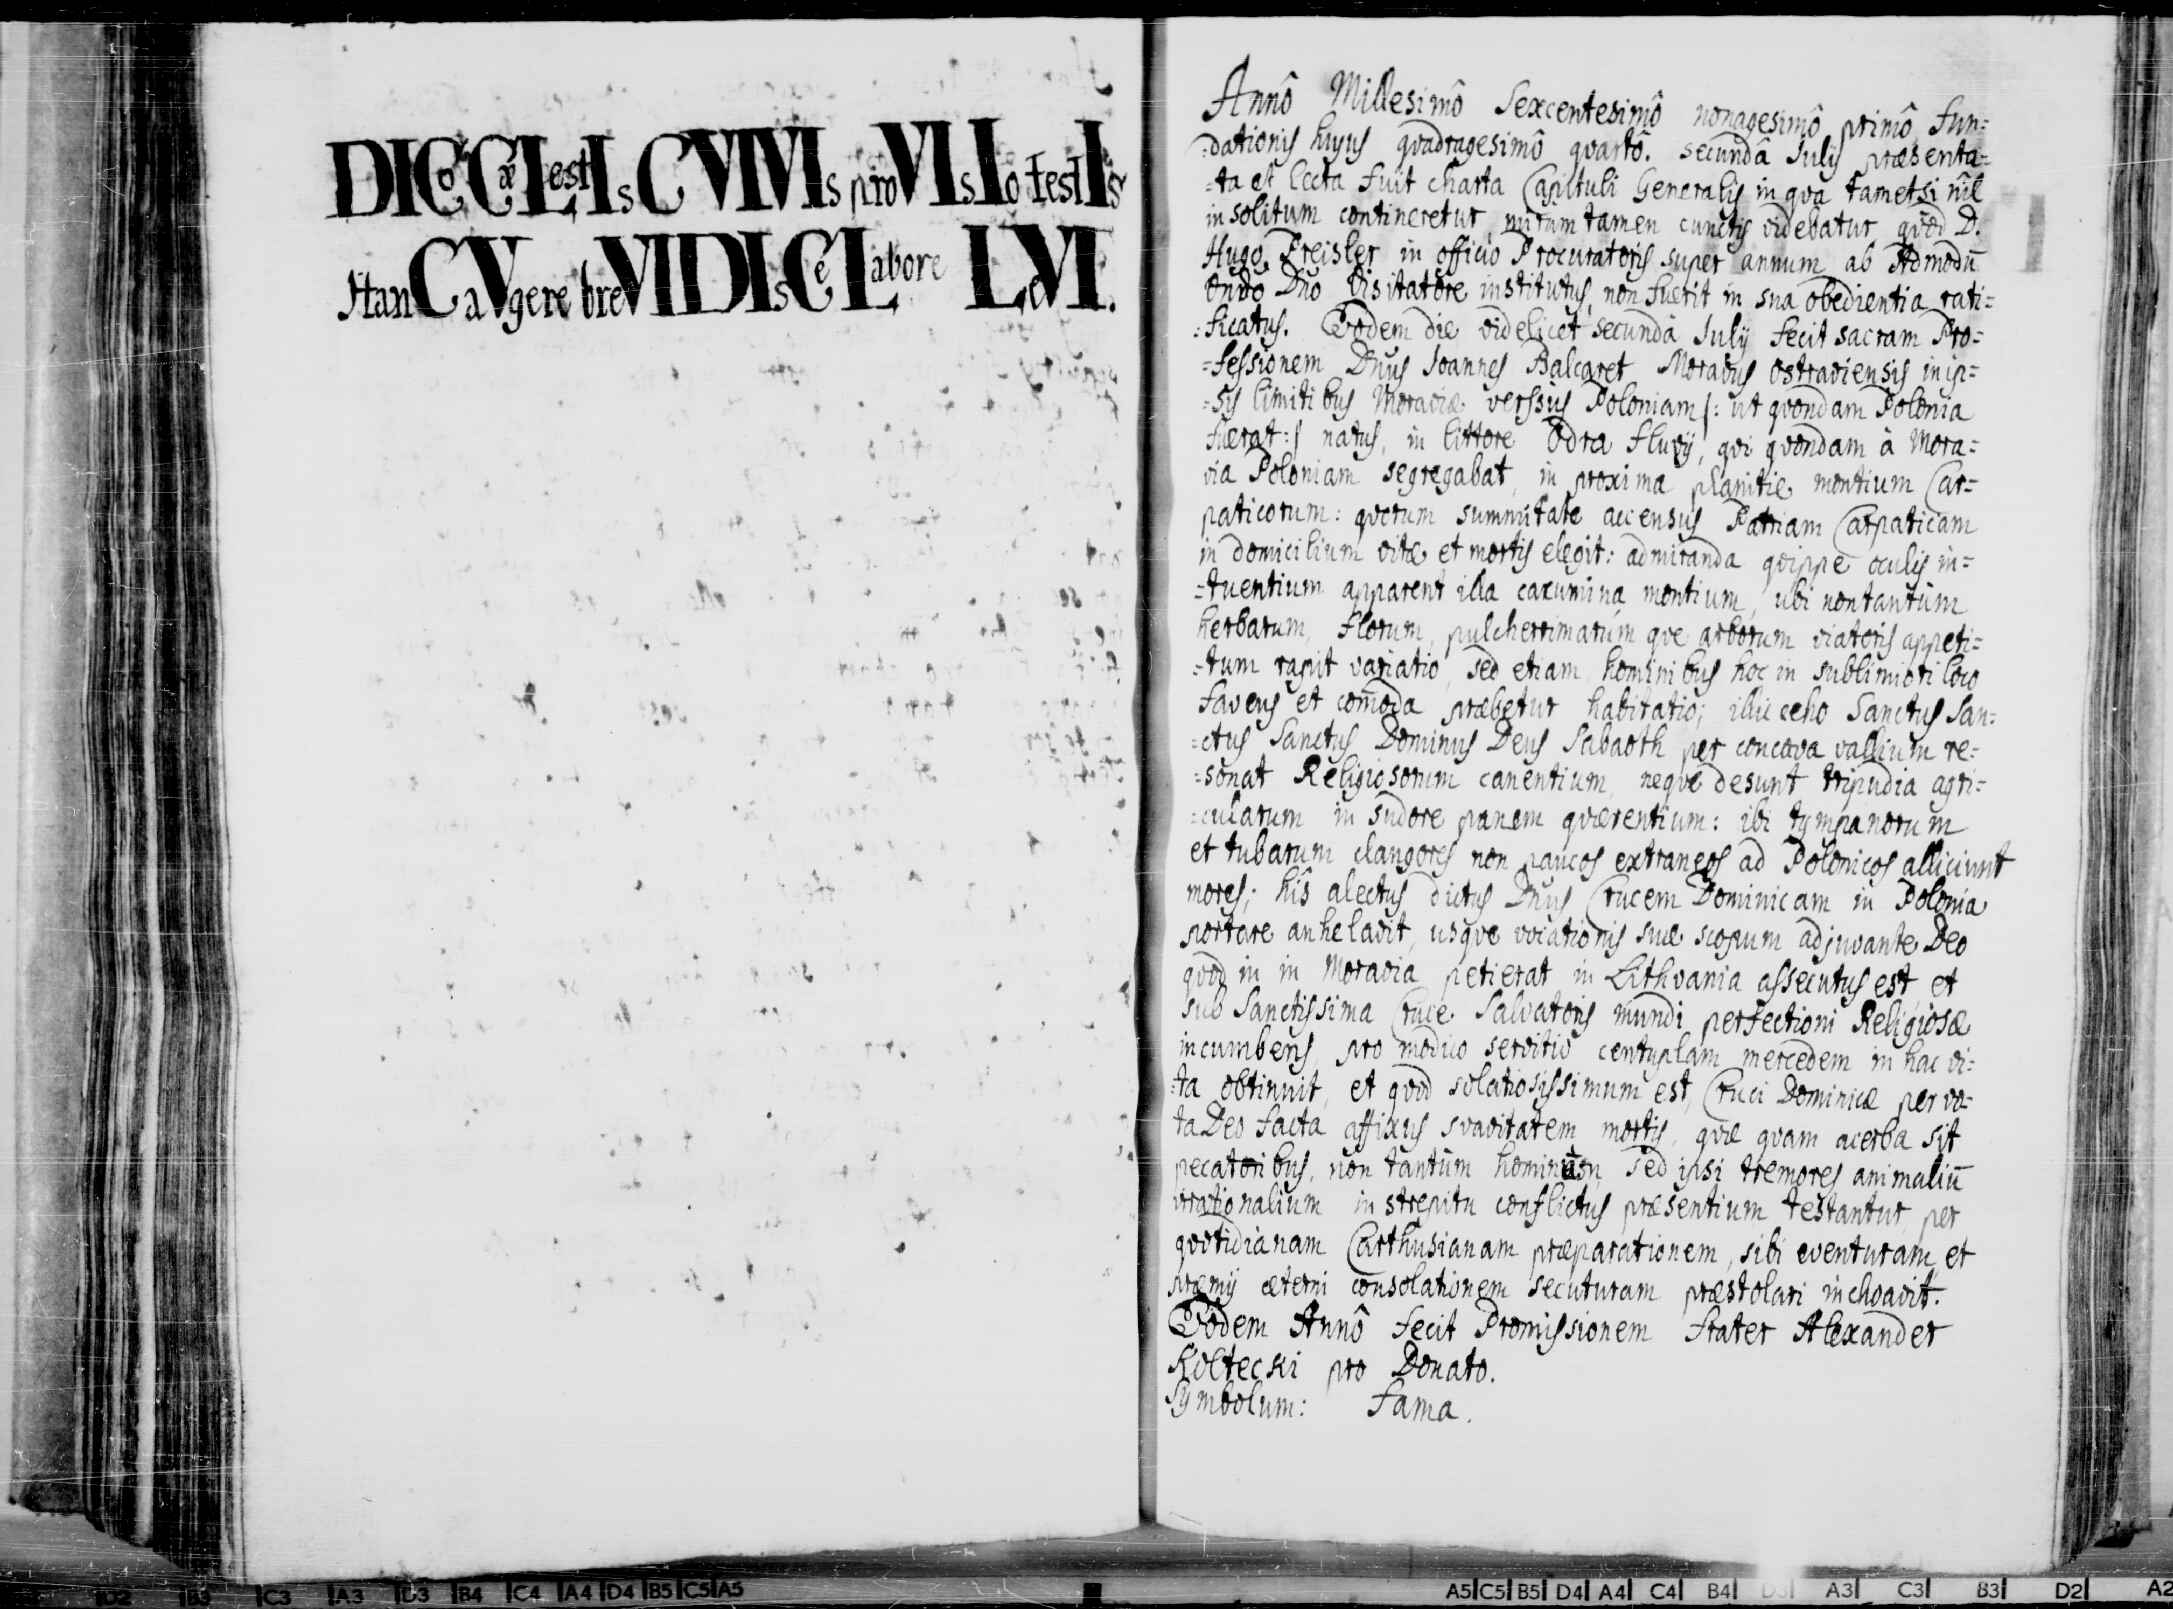 DICo CæLestIs CVIVIs proVIsIo testIs
HanC aVgere breVI DIsCe Labore LeVI.
Annô Millesimô Sexcentesimô nonagesimô primô fun=
=dationis hujus qvadragesimô qvartô. secundâ Julij præsenta=
=ta et lecta fuit charta Capituli Generalis in qva tametsi nĩl
insolitum contineretur, mirum tamen cunctis videbatur qvod D.
Hugo Preisler in officio Procuratoris super annum ab Admodũ
Vndo Dno Visitatore institutus, non fuerit in sua obedientia rati=
=ficatus. Eodem die videlicet secundâ Julij fecit sacram Pro=
=fessionem Dnus Joannes Balcaret Moravus Ostraviensis in ip=
=sis limitibus Moraviæ verssus Poloniam /: ut qvondam Polonia
fuerat :/ natus, in littore Odræ fluvij, qvi qvondam à Mora=
via Poloniam segregabat, in proxima planitie montium Car=
paticorum: qvorum summitate accensus Patriam Carpaticam
in domicilium vitæ et mortis elegit: admiranda qvippe oculis in=
=tuentium apparent illa caxumina montium, ubi non tantùm
herbarum, florum, pulcherrimarúm qve arborum viatoris appeti=
=tum rapit variatio, sed etiam hominibus hoc in sublimiori loco
favens et com̃oda præbetur habitatio; illic echo Sanctus San=
=ctus Sanctus Dominus Deus Sabaoth per concava vallium re=
=sonat Religiosorum canentium, neqve desunt tripudia agri=
=cularum in sudore panem qværentium: ibi tympanorum
et tubarum clangores non paucos extraneos ad Polonicos alliciunt
mores; hîs alectus dictus Dnus Crucem Dominicam in Polonia
portare anhelavit, usqve vocationis suæ scopum adjuvante Deo
qvod in in Moravia petierat in Lithvania assecutus est, et
sub Sanctissima Cruce Salvatoris mundi perfectioni Religiosæ
incumbens, pro modico servitio centuplam mercedem in hac vi=
=ta obtinuit, et qvod solatiosissimum est, Cruci Dominicæ per vo=
ta Deo facta affixus svavitatem mortis, qvæ qvam acerba sit
pecatoribus, non tantùm hominum, sed ipsi tremores animaliũ
irrationalium in strepitu conflictus præsentium testantur, per
qvotidianam Carthusianam præparationem, sibi eventuram et
præmij æterni consolationem secuturam præstolari inchoavit.
Eôdem Annô fecit Promissionem Frater Alexander
Koltecki pro Donato.
Symbolum: Fama.